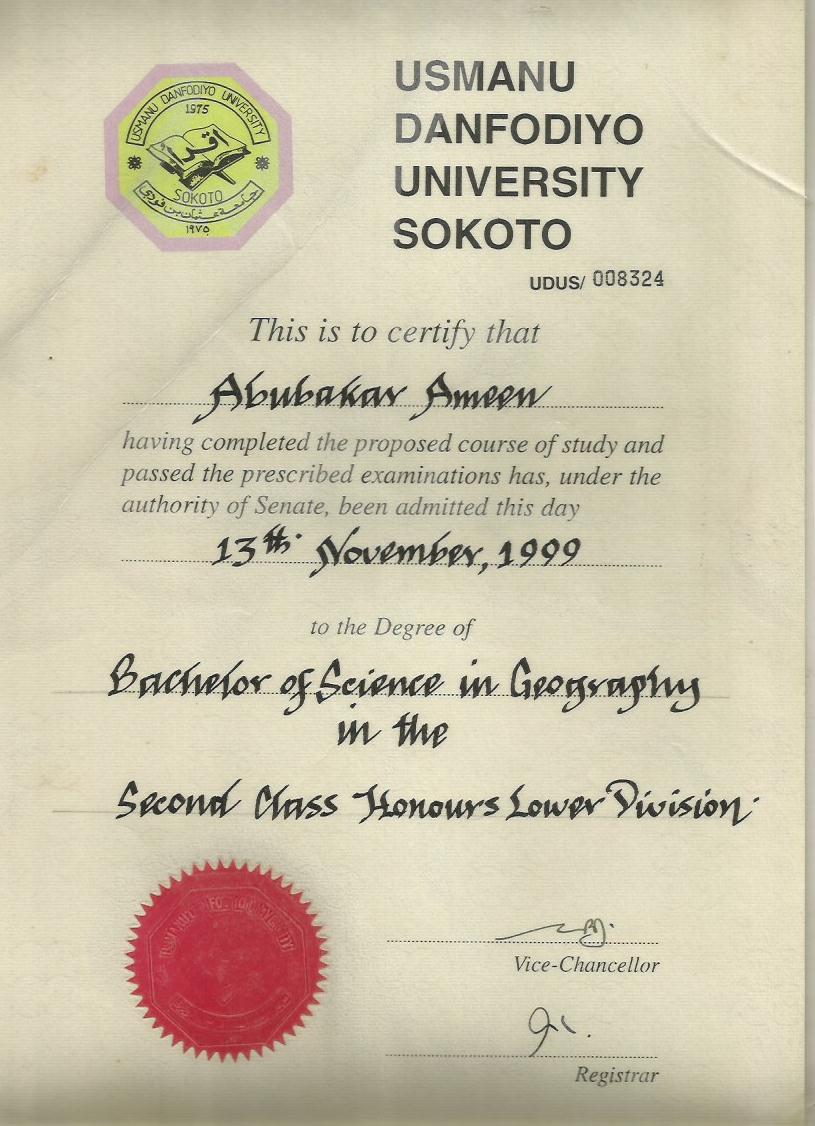 USMANU DANFODIYO UNIVERSITY
1975
اقرأ
SOKOTO
جامعة عثمان بن فودي
١٩٧٥
USMANU
DANFODIYO
UNIVERSITY
SOKOTO
UDUS/ 008324
This is to certify that
Abubakar Ameen
having completed the proposed course of study and
passed the prescribed examinations has, under the
authority of Senate, been admitted this day
13th. November, 1999
to the Degree of
Bachelor of Science in Geography
in the
Second Class Honours Lower Division.
Vice-Chancellor
Registrar